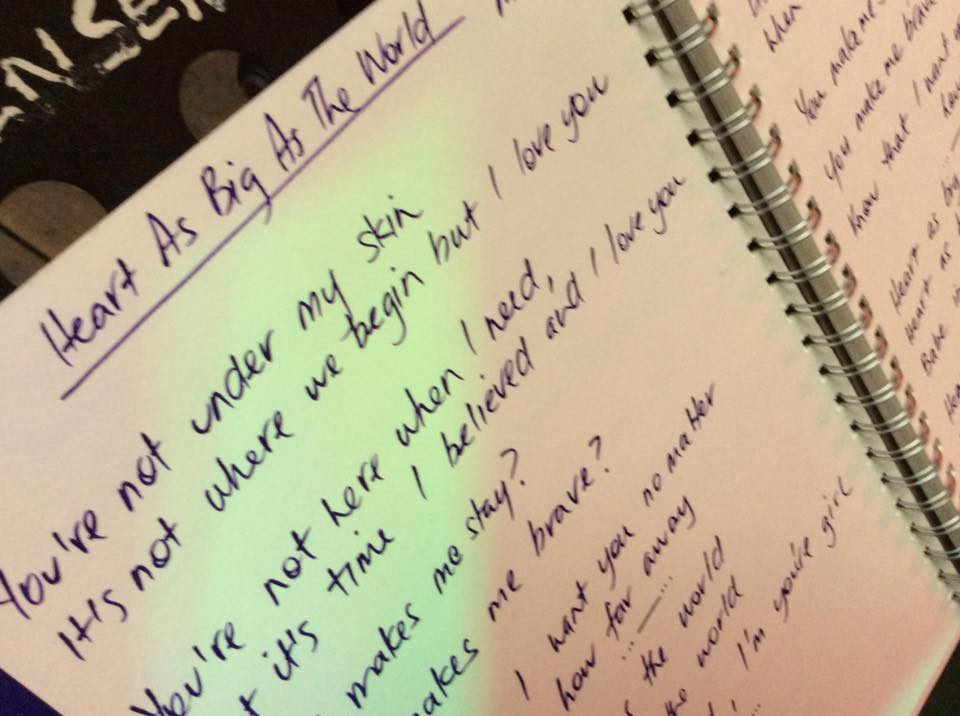 Heart As Big As The World
You're not under my skin
It's not where we begin but I love you
You're not here when I need,
it's time I believed and I love you
makes me stay?
makes me brave?
I want you no matter
how far away
the world
the world
I'm you're girl
when
You make me
You make me brave
Know that I want
Heart as big
Heart as
Babe